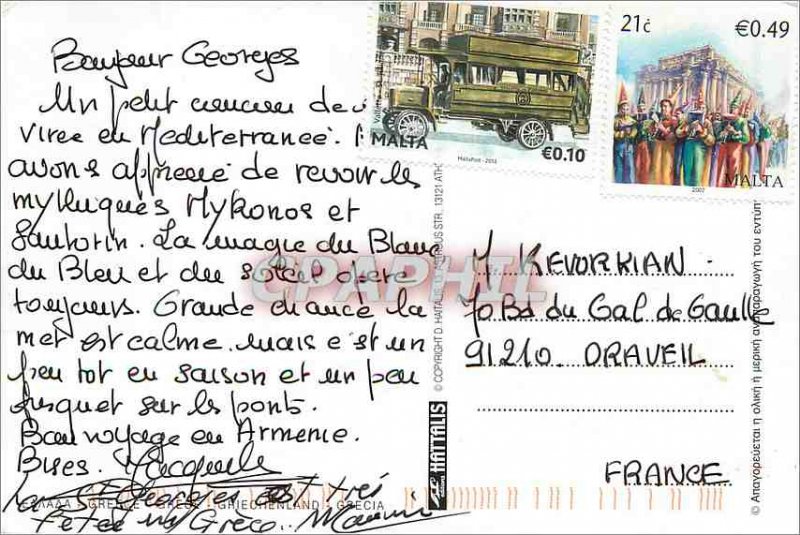 Bonjour Georges
Un petit coucou de
virée en Mediterrannée.
avons apprécié de revoir les
mythiques Mykonos et
Santorin. La magie du Blanc
du Bleu et du soleil opère
toujours. Grande chance la
met est calme. mais c'est un
peu tot en saison et un peu
frisquet sur les ponts.
Bon voyage en Armenie.
Bises.
Georges est très
Grèce
ΕΛΛΑΔΑ - GREECE - GRIECHENLAND - GRECIA
CPAPHIL
HAITALIS
© COPYRIGHT D. HAITALIS, STR. 13121 ATH
Απαγορεύεται η ολική ή μερική αναπαραγωγή του εντύπ
MALTA
MaltaPost - 2013
€0.10
21c
€0.49
2007
MALTA
M. KEVORKIAN
70 Bd du Gal de Gaulle
91210. DRAVEIL
FRANCE